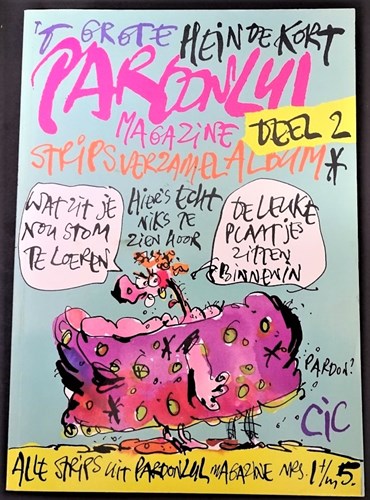 'T GROTE HEIN DE KORT
PARDON LUL
MAGAZINE DEEL 2
STRIPS.VERZAMEL.ALBUM*
WAT ZIT JE
NOU STOM
TE LOEREN
HIER'S ECHT
NIKS TE
ZIEN HOOR
DE LEUKE
PLAATJES
ZITTEN
BINNENIN
PARDON?
CIC
ALLE STRIPS UIT PARDON LUL MAGAZINE NRS. 1 t/m 5.